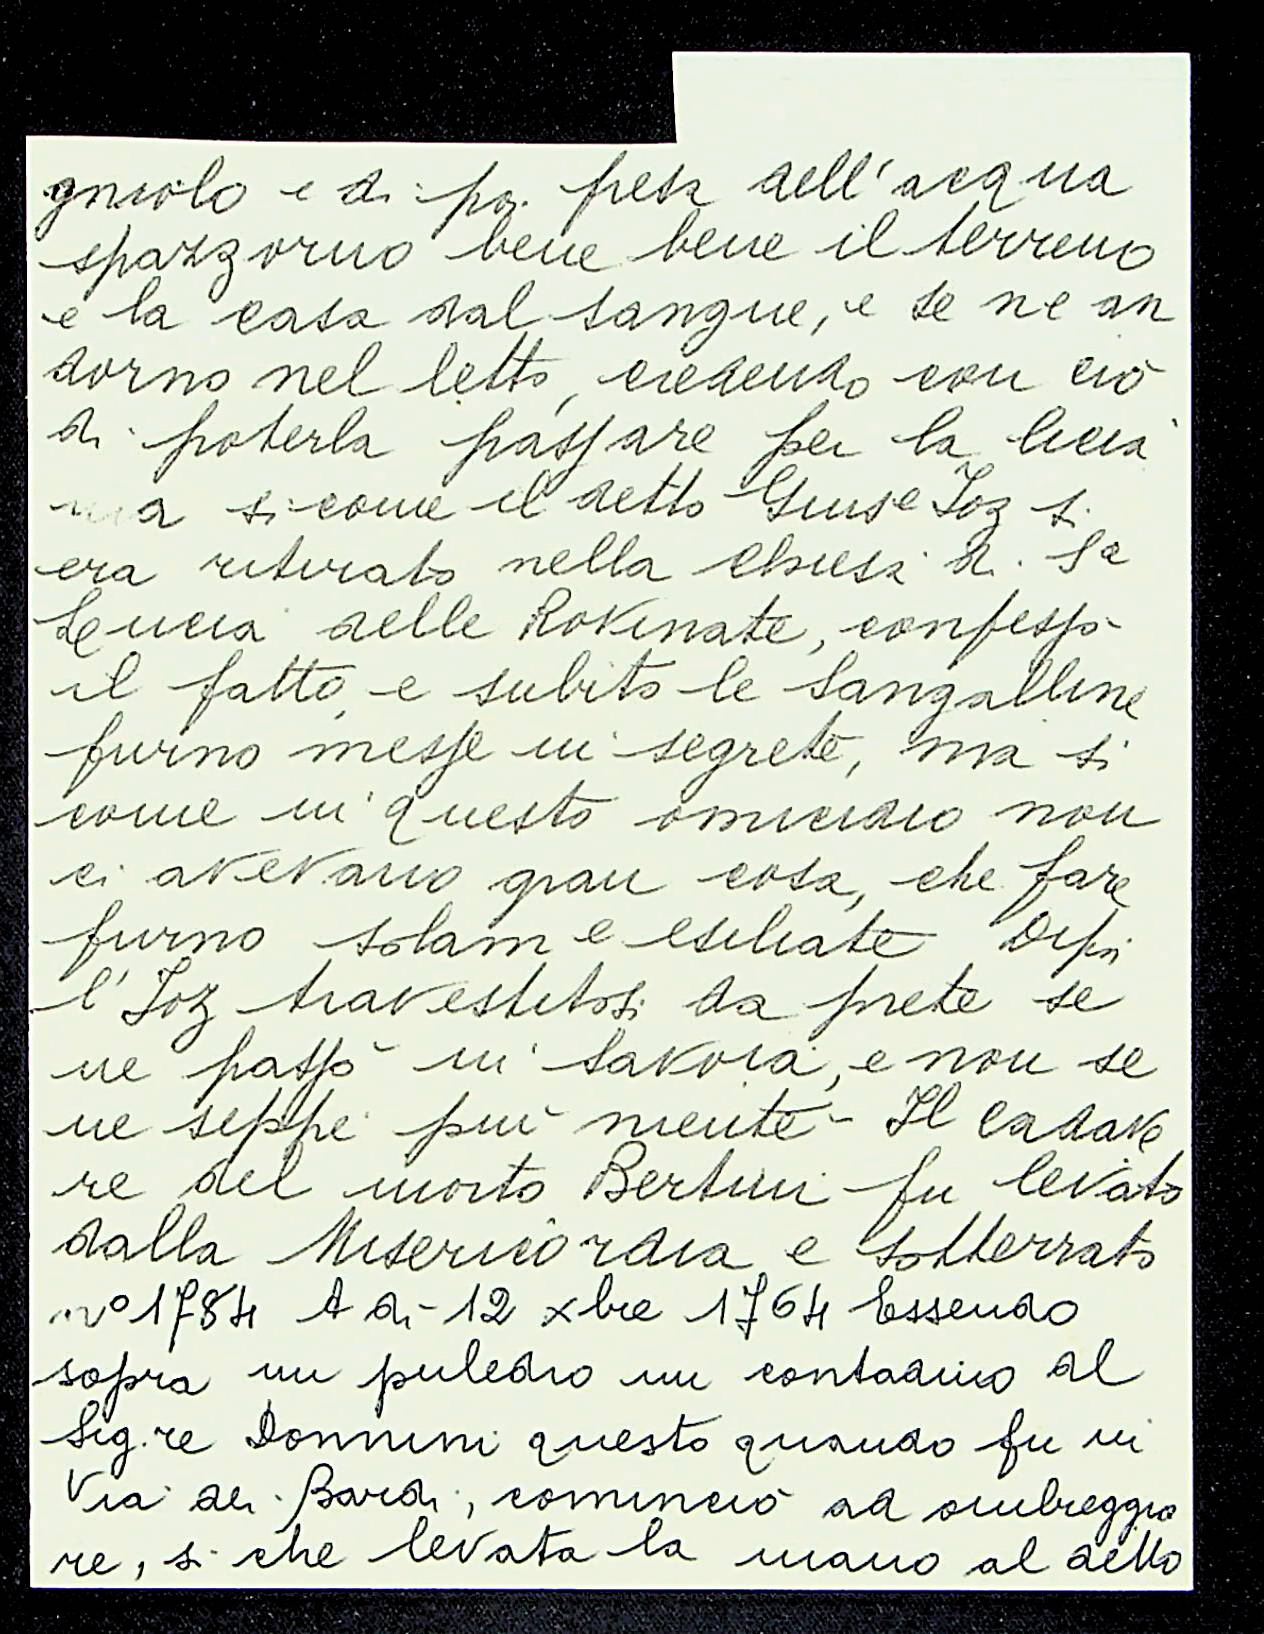 gniolo e di poi presa dell'acqua
spazzorno bene bene il terreno
e la casa dal sangue, e se ne an
dorno nel letto, credendo con ciò
di poterla passare per la licia
ma si come il detto Giusᵉ Joz si
era ritirato nella Chiesa di Sᵃ
Lucia delle Rovinate, confessò
il fatto, e subito le Sangalline
furno messe in segrete, ma si
come in questo omicidio non
ci avevano gran cosa, che fare
furno solame esiliate Dipoi
l'Joz travestitosi da prete se
ne passò in Savoia, e non se
ne seppe più niente - Il cadave
re del morto Bertini fu levato
dalla Misericordia e sotterrato
n° 1784 A di 12 xbre 1764 Essendo
sopra un puledro un contadino al
Sig.re Donnini questo quando fu in
Via dei Bardi, cominciò ad ombreggia
re, si che levata la mano al detto